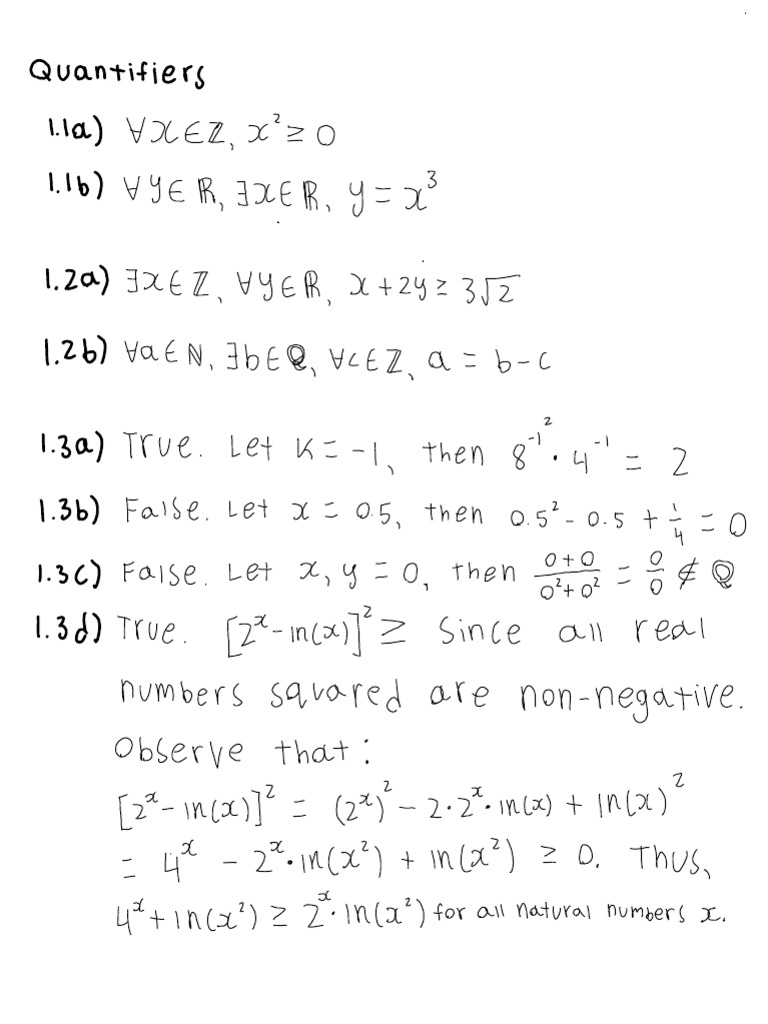 Quantifiers
1.1a) ∀x∈ℤ, x² ≥ 0
1.1b) ∀y∈ℝ, ∃x∈ℝ, y = x³
1.2a) ∃x∈ℤ, ∀y∈ℝ, x + 2y ≥ 3√2
1.2b) ∀a∈ℕ, ∃b∈ℚ, ∀c∈ℤ, a = b - c
1.3a) True. Let K = -1, then 8^{-1^2} · 4^{-1} = 2
1.3b) False. Let x = 0.5, then 0.5² - 0.5 + 1/4 = 0
1.3c) False. Let x, y = 0, then (0+0)/(0²+0²) = 0/0 ∉ ℚ
1.3d) True. [2^x - ln(x)]² ≥ since all real
numbers squared are non-negative.
Observe that:
[2^x - ln(x)]² = (2^x)² - 2·2^x·ln(x) + ln(x)²
= 4^x - 2^x·ln(x²) + ln(x²) ≥ 0. Thus,
4^x + ln(x²) ≥ 2^x·ln(x²) for all natural numbers x.